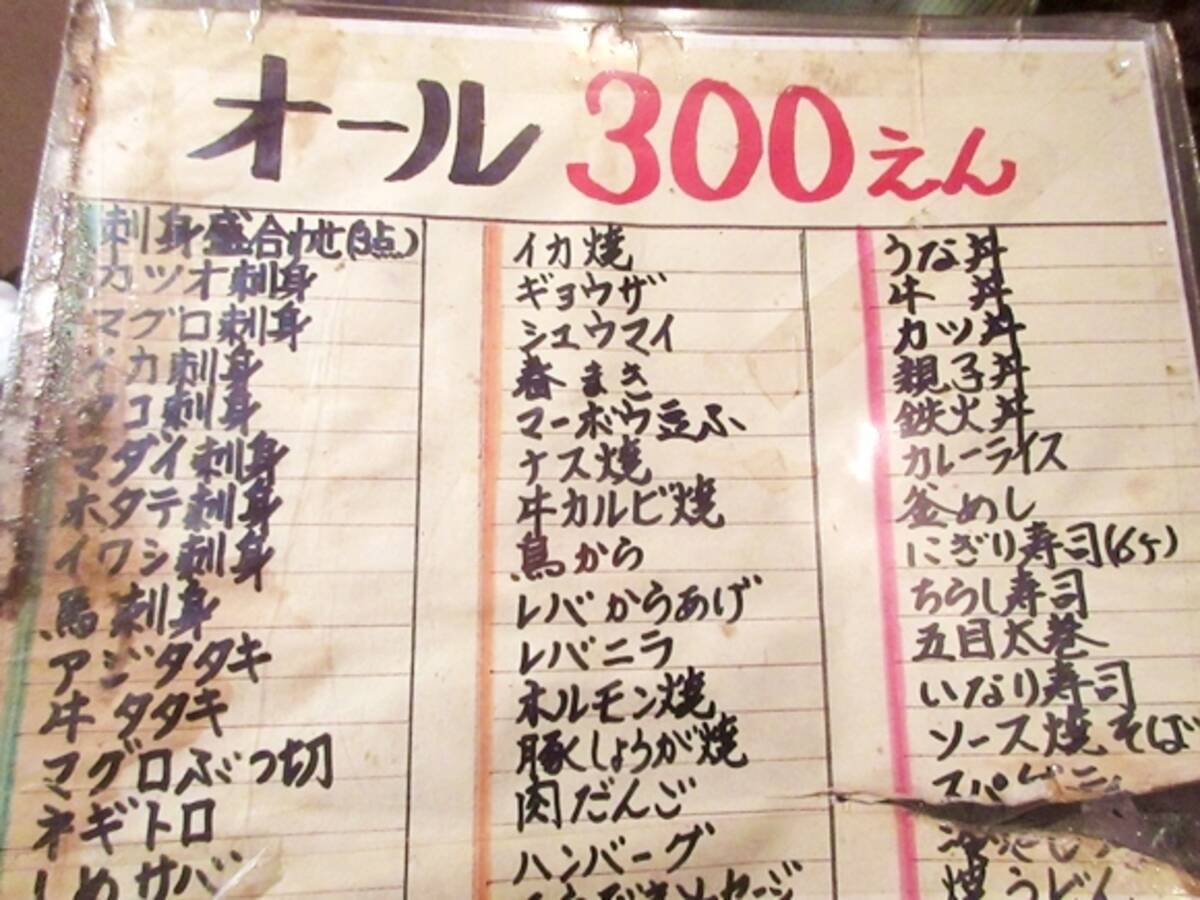 オール 300えん
刺身盛合わせ(3点)
カツオ刺身
マグロ刺身
イカ刺身
タコ刺身
マダイ刺身
ホタテ刺身
イワシ刺身
馬刺身
アジタタキ
牛タタキ
マグロぶつ切
ネギトロ
しめサバ
イカ焼
ギョウザ
シュウマイ
春まき
マーボウ豆ふ
ナス焼
牛カルビ焼
鳥から
レバからあげ
レバニラ
ホルモン焼
豚しょうが焼
肉だんご
ハンバーグ
うな丼
牛丼
カツ丼
親子丼
鉄火丼
カレーライス
釜めし
にぎり寿司(6ケ)
ちらし寿司
五目太巻
いなり寿司
ソース焼そば
焼うどん